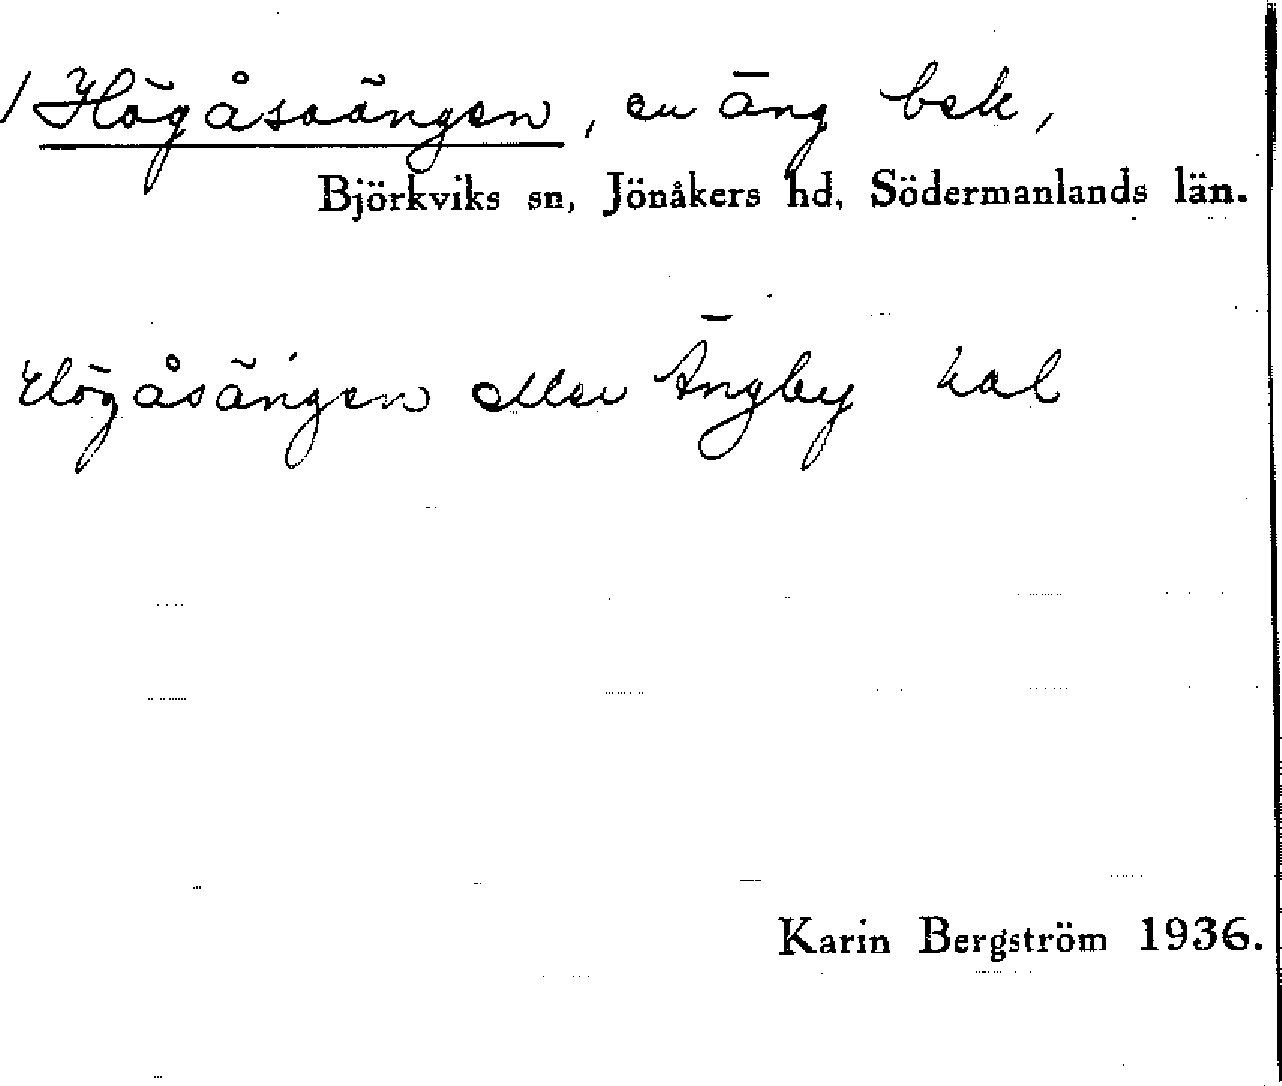 / Högåsaängen, en äng bek,
Björkviks sn, Jönåkers hd, Södermanlands län.
Högåsängen eller Ängby kal
Karin Bergström 1936.